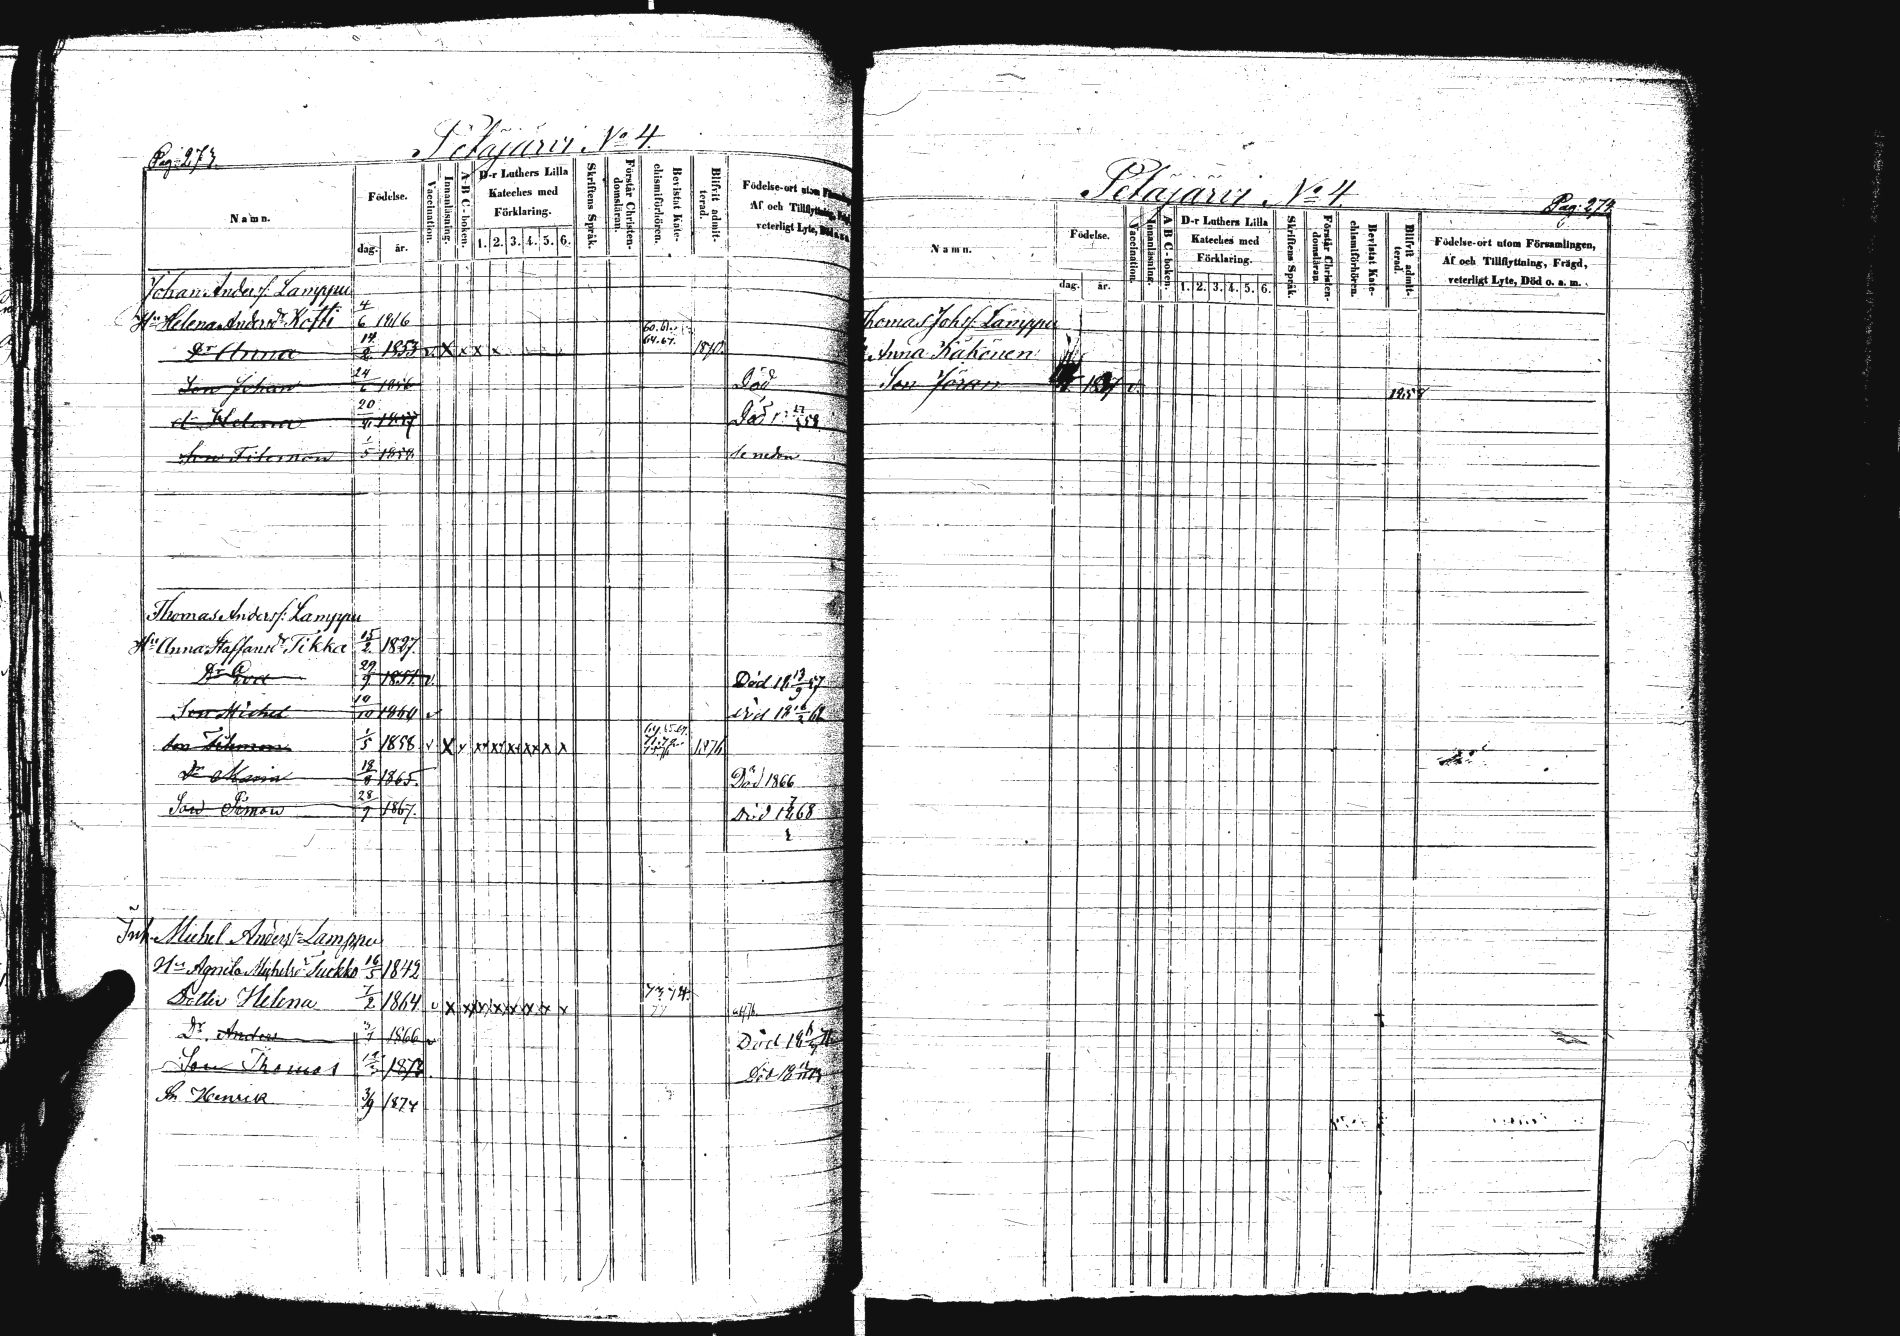 Pag: 273.
Petäjärvi No 4.
Namn.
Födelse.
dag.
år.
Vaccination.
Innanläsning.
A B C-boken.
D-r Luthers Lilla
Kateches med
Förklaring.
1. 2. 3. 4. 5. 6.
Skriftens Språk.
Förstår Christen-
domsläran.
Bevistat Kate-
chismiförhören.
Blifvit admit-
terad.
Födelse-ort utom
Af och Tillflyttning,
veterligt Lyte, Död
Johan Anders: Lamppu
Hu Helena Andersdr Kotti 4/6 1816
Dr Anna 14/2 1853 v X x x x 60.61. 64.67. 1870.
Son Johan 24/6 1856 Död
dr Helena 20/ 1857 Död
Son Filemon 1/5 1858 se nedan
Thomas Anders: Lamppu
Hu Anna Staffansdr Tikka 15/2 1827.
Dr Eva 29/9 1851. v. Död 18 13/9 57
Son Michel 10/10 1860 v Död 18
Son Filemon 1/5 1858 v X 1876
Dr Maria 18/8 1865. Död 1866
Son Simon 28/9 1867. Död 18 68
Inh. Michel Anders: Lamppu
Hu Agneta Michelsdr Suckko 16/5 1842
Dotter Helena 7/2 1864 v X 73 74. 77
Dr. Anders 3/7 1866 v Död 18
Son Thomas 1873. Död 18
Sn Henrik 3/9 1874
Petäjärvi No 4.
Pag: 273
Namn.
Födelse.
dag.
år.
Vaccination.
Innanläsning.
A B C-boken.
D-r Luthers Lilla
Kateches med
Förklaring.
1. 2. 3. 4. 5. 6.
Skriftens Språk.
Förstår Christen-
domsläran.
Bevistat Kate-
chismiförhören.
Blifvit admit-
terad.
Födelse-ort utom Församlingen,
Af och Tillflyttning, Frägd,
veterligt Lyte, Död o. s. m.
Thomas Johs: Lamppu
Anna Kähönen
Son Jöran v. 185